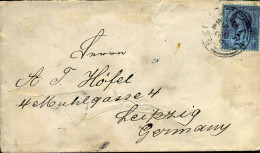 Herrn
A T. Höfel
4 Muhlgasse 4
Leipzig
Germany